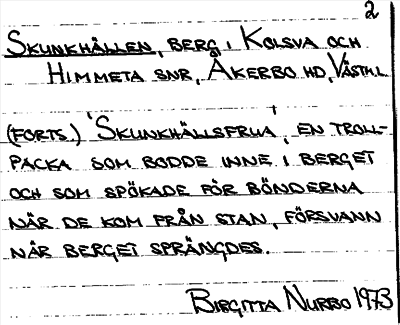 2
SKUNKHÄLLEN, BERG I KOLSVA OCH
HIMMETA SNR, ÅKERBO HD, VÄSTML.
(FORTS.) 'SKUNKHÄLLSFRUA', EN TROLL-
PACKA SOM BODDE INNE I BERGET
OCH SOM SPÖKADE FÖR BÖNDERNA
NÄR DE KOM FRÅN STAN, FÖRSVANN
NÄR BERGET SPRÄNGDES.
BIRGITTA NURBO 1973